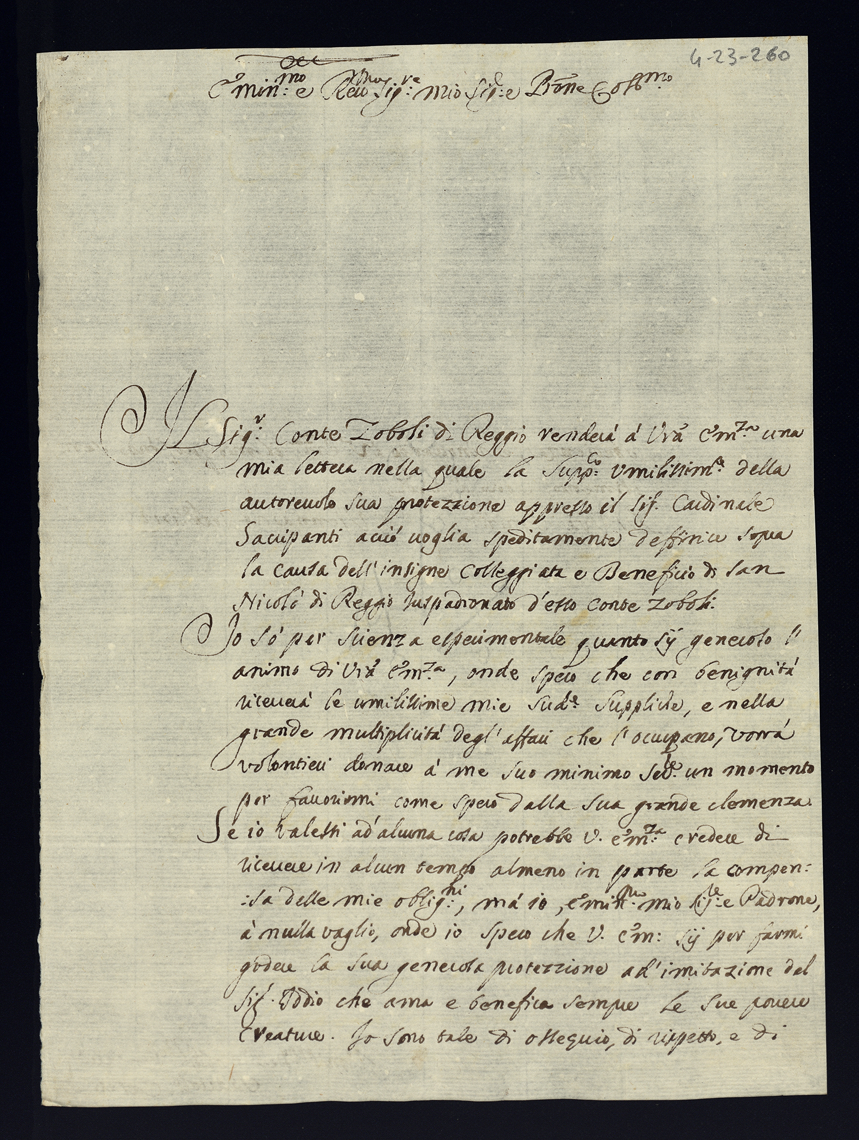 4-23-260
Emin:mo e Rev:mo Sig:re mio Sig:e Prōne Colb:mo
Il Sig:r Conte Zoboli di Reggio renderà à Vrã Em:za una
mia lettera nella quale la Supp:co umilissim:te della
autorevolo sua protezzione appresso il Sig.r Cardinale
Sacripanti acciò voglia speditamente deffinire sopra
la causa dell'insigne Colleggiata e Beneficio di San
Nicolò di Reggio Juspadronato d'esso Conte Zoboli.
Io sò per scienza esperimentale quanto sij generoso l'
animo di Vrã Em:za, onde spero che con benignità
riceverà le umilissime mie sud:e suppliche, e nella
grande multiplicità degl'affari che l'occupano, vorrà
volontieri donare à me suo minimo Se:re un momento
per favorirmi come spero dalla sua grande clemenza.
Se io valessi ad'alcuna cosa potrebbe V. Em:za credere di
ricevere in alcun tempo almeno in parte la compen:
:sa delle mie oblig:ni, mà io, Emin:mo mio Sig:re e Padrone,
à nulla vaglio, onde io spero che V. Em: sij per farmi
godere la sua generosa protezzione ad'imitazione del
Sig.r Iddio che ama e benefica sempre le sue povere
Creature. Io sono tale di ossequio, di rispetto, e di